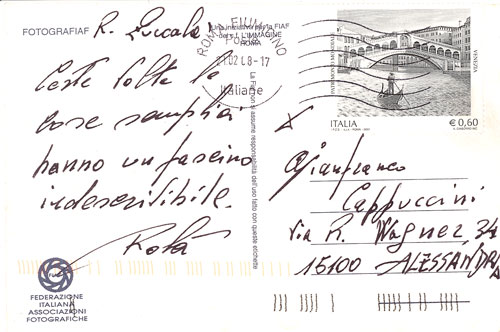 FOTOGRAFIAF
R. Zuccalà
Certe volte le
cose semplici
hanno un fascino
indescrivibile.
Rotà
FEDERAZIONE
ITALIANA
ASSOCIAZIONI
FOTOGRAFICHE
L'IMMAGINE
ROMA
ROMA FIUMICINO
02 08-17
Italiane
La FIAF non si assume responsabilità dell'uso fatto con queste etichette
PATRIMONIO MONDIALE
VENEZIA
ITALIA
€ 0,60
Gianfranco
Cappuccini
Via R. Wagner, 34
15100 ALESSANDRIA